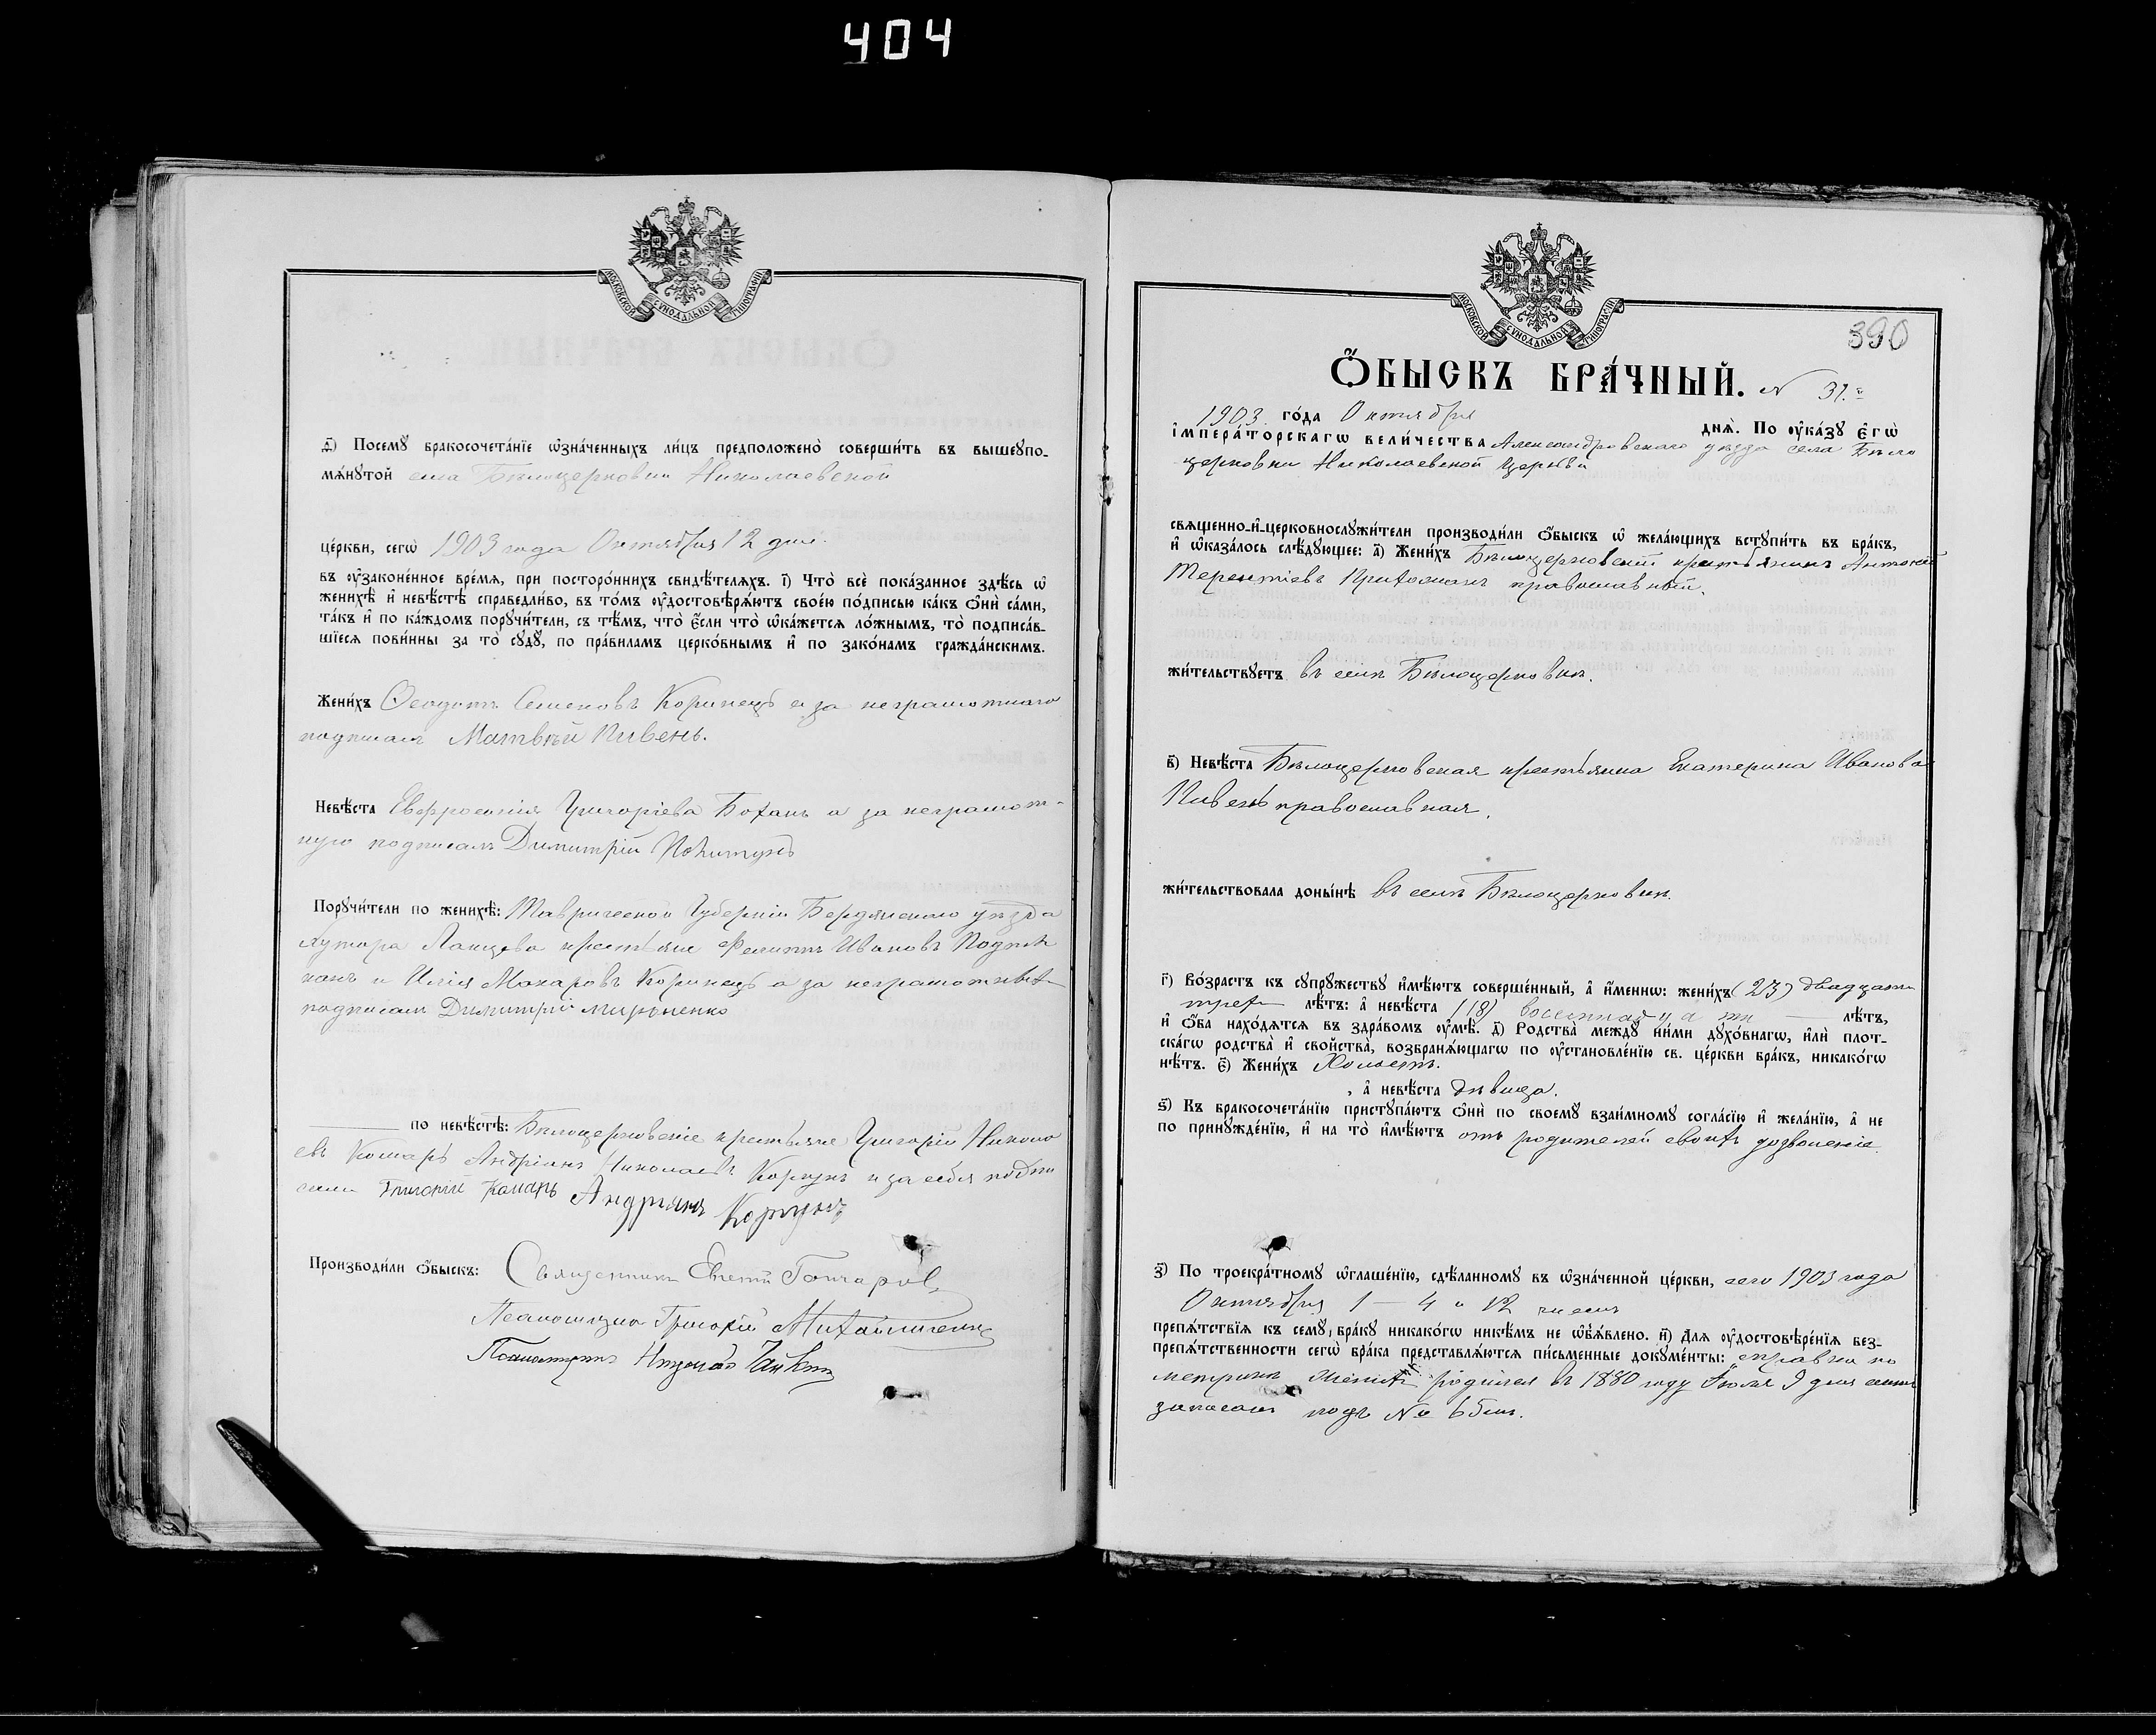 404
МОСКОВСКОЙ СѴНОДАЛЬНОЙ ТИПОГРАФІИ
д҃) Посемꙋ̀ бракосочета́нїе ѡ҆зна́ченныхъ ли́цъ предположено̀ соверши́ть въ вышеꙋпо-
мѧ́нꙋтой села Бѣлоцерковки Николаевской
це́ркви, сегѡ̀ 1903 года Октября 12 дня.
въ ᲂу҆зако́ненное вре́мѧ, при посторо́ннихъ свидѣ́телѧхъ. і҃) Что̀ всѐ пока́занное здѣ́сь ѡ҆
женихѣ̀ и҆ невѣ́стѣ справедли́во, въ то́мъ ᲂу҆достовѣрѧ́ютъ свое́ю по́дписью ка́къ ѻ҆нѝ са́ми,
та́къ и҆ по ка́ждомъ порꙋчи́тели, съ тѣ́мъ, что̀ є҆́сли что̀ ѡ҆ка́жетсѧ ло́жнымъ, то̀ подписа́в-
шїесѧ пови́нны за то̀ сꙋдꙋ̀, по пра́виламъ церко́внымъ и҆ по зако́намъ гражда́нскимъ.
Жени́хъ Ѳеодотъ Семеновъ Коринецъ а за неграмотнаго
подписалъ Матвѣй Пивень.
Невѣ́ста Евфросинія Григоріева Боханъ а за неграмот-
ную подписалъ Димитрій
Порꙋчи́тели по женихѣ̀: Таврической Губерніи Бердянскаго уѣзда
Хутора крестьяне Филиппъ Ивановъ
и Илія Макаровъ Коринецъ а за неграмотныхъ
подписалъ Димитрій Мироненко
по невѣ́стѣ: Бѣлоцерковскіе крестьяне Григорій Никола
евъ Комаръ Андріанъ Николаевъ Коржунъ и за себя подпи
сали Григорій Камаръ Андріянъ Коржунъ
Производи́ли ѻ҆́быскъ: Священникъ Гончаровъ
Псаломщикъ Григорій Михайличенко
Псаломщикъ
МОСКОВСКОЙ СѴНОДАЛЬНОЙ ТИПОГРАФІИ
390
Ѻ҆́БЫСКЪ БРА́ЧНЫЙ. N 31.
1903. го́да Октября днѧ̀. По ᲂу҆ка́зꙋ є҆гѡ̀
і҆мпера́торскагѡ вели́чества Александровскаго уѣзда села Бѣло
церковки Николаевской Церкви
свѧще́нно-и҆-церковнослꙋжи́тели производи́ли ѻ҆́быскъ ѡ҆ жела́ющихъ встꙋпи́ть въ бра́къ,
и҆ ѡ҆каза́лось слѣ́дꙋющее: а҃) Жени́хъ Бѣлоцерковскій крестьянинъ Антоній
Терентіевъ православный.
жи́тельствꙋетъ въ селѣ Бѣлоцерковкѣ.
в҃) Невѣ́ста Бѣлоцерковская крестьянка Екатерина Иванова
Пивень православная.
жи́тельствовала доны́нѣ въ селѣ Бѣлоцерковкѣ.
г҃) Во́зрастъ къ сꙋпрꙋ́жествꙋ и҆мѣ́ютъ соверше́нный, а҆ и҆́менно: жени́хъ (23) двадцати
трехъ лѣ́тъ: а҆ невѣ́ста (18) восемнадцати лѣ́тъ,
и҆ ѻ҆́ба нахо́дѧтсѧ въ здра́вомъ ᲂу҆мѣ̀. д҃) Родства̀ междꙋ̀ ни́ми дꙋхо́внагѡ, и҆лѝ плот-
ска́гѡ родства̀ и҆ сво́йства̀, возбранѧ́ющагѡ по ᲂу҆становле́нїю св. це́ркви бра́къ, никако́гѡ
нѣ́тъ. є҃) Жени́хъ Холостъ.
, а҆ невѣ́ста дѣвица.
ѕ҃) Къ бракосочета́нїю пристꙋпа́ютъ ѻ҆нѝ по своемꙋ̀ взаи́мномꙋ согла́сїю и҆ жела́нїю, а҆ не
по принꙋжде́нїю, и҆ на то̀ и҆мѣ́ютъ отъ родителей своихъ дозволеніе.
з҃) По троекра́тномꙋ ѡ҆глаше́нїю, сдѣ́ланномꙋ въ ѡ҆зна́ченной це́ркви, сего 1903 года
Октября 1 — 4 и 12 чиселъ
препѧ́тствїѧ къ семꙋ̀ бра́кꙋ никако́гѡ никѣ́мъ не ѡ҆б̾ѧ́влено. и҃) Длѧ̀ ᲂу҆достовѣре́нїѧ без-
препѧ́тственности сегѡ̀ бра́ка представлѧ́ютсѧ пи́сьменные докꙋме́нты: справка по
метрикѣ женихъ родился въ 1880 году Іюля 9 дня
записанъ подъ № 65мъ.